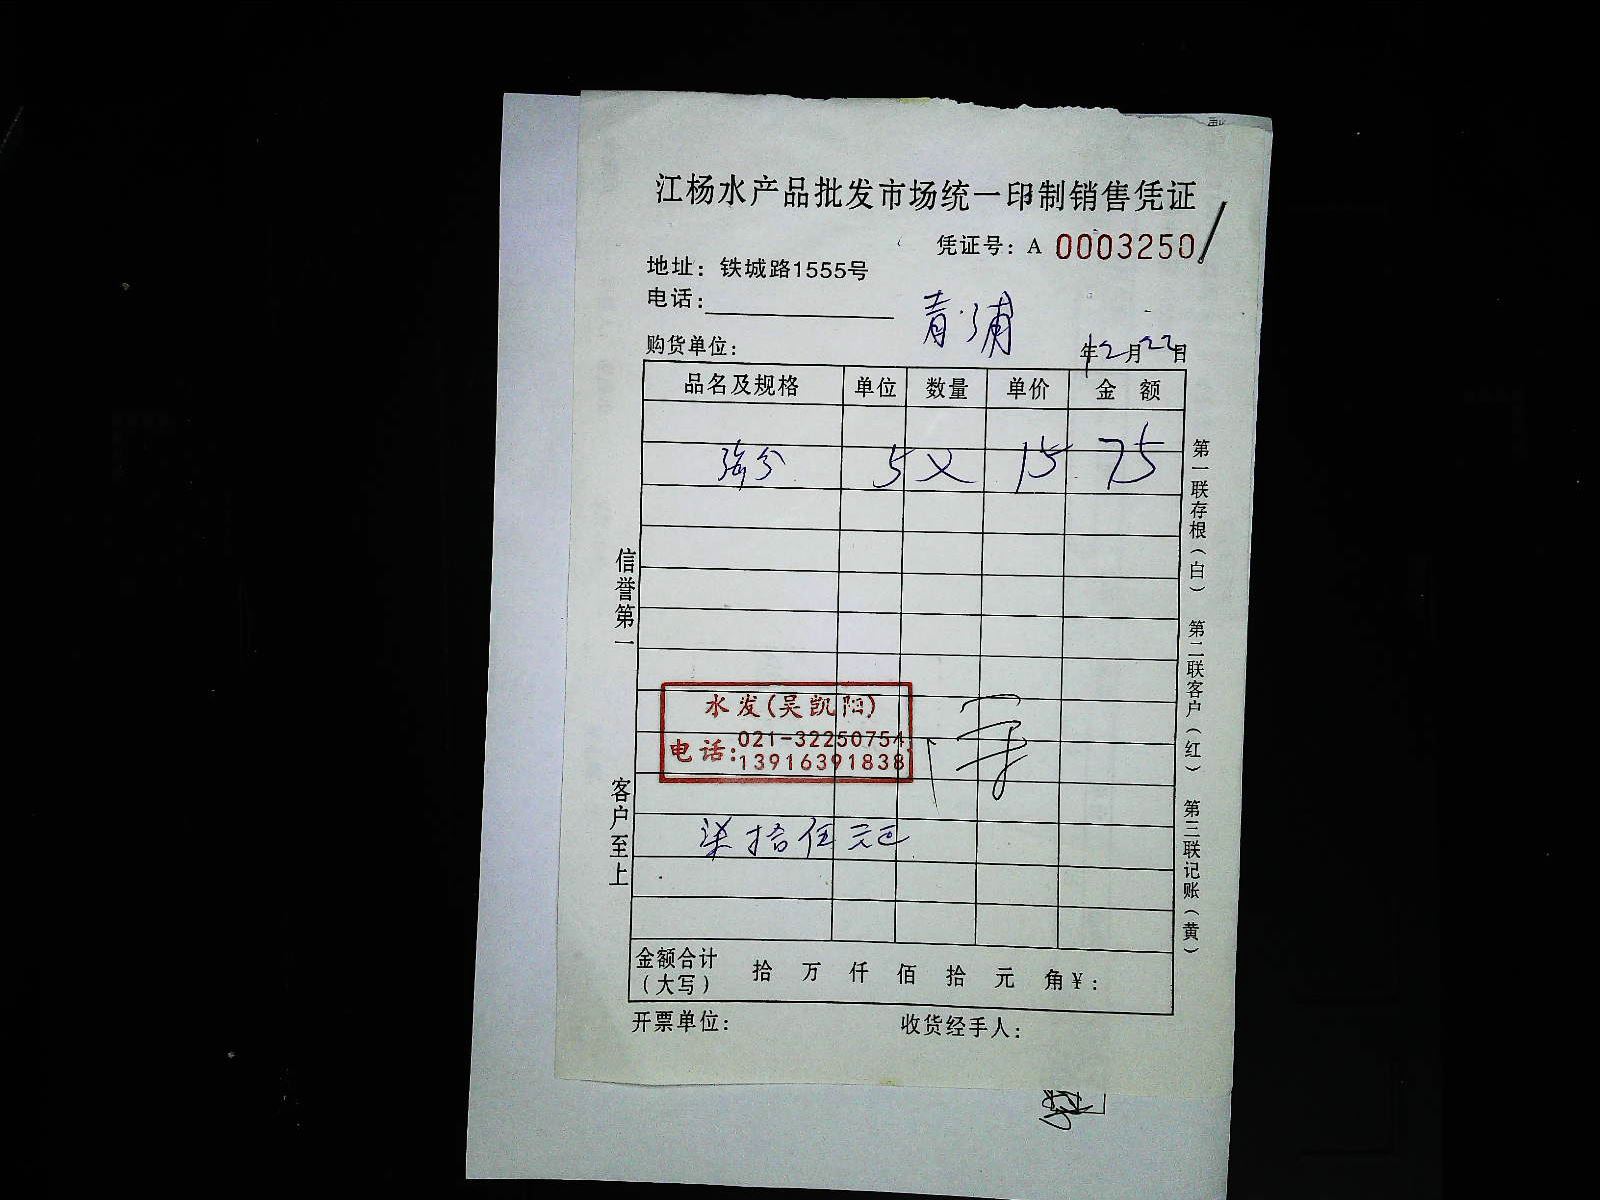 江杨水产品批发市场统一印制销售凭证
凭证号：A 0003250
地址：铁城路1555号
电话：
青浦
购货单位：
年2月22日
品名及规格 单位 数量 单价 金 额
5 15 75
信誉第一
客户至上
水发(吴凯阳)
电话:021-32250754
13916391838
柒拾伍元
金额合计（大写） 拾 万 仟 佰 拾 元 角¥：
开票单位： 收货经手人：
第一联存根（白） 第二联客户（红） 第三联记账（黄）